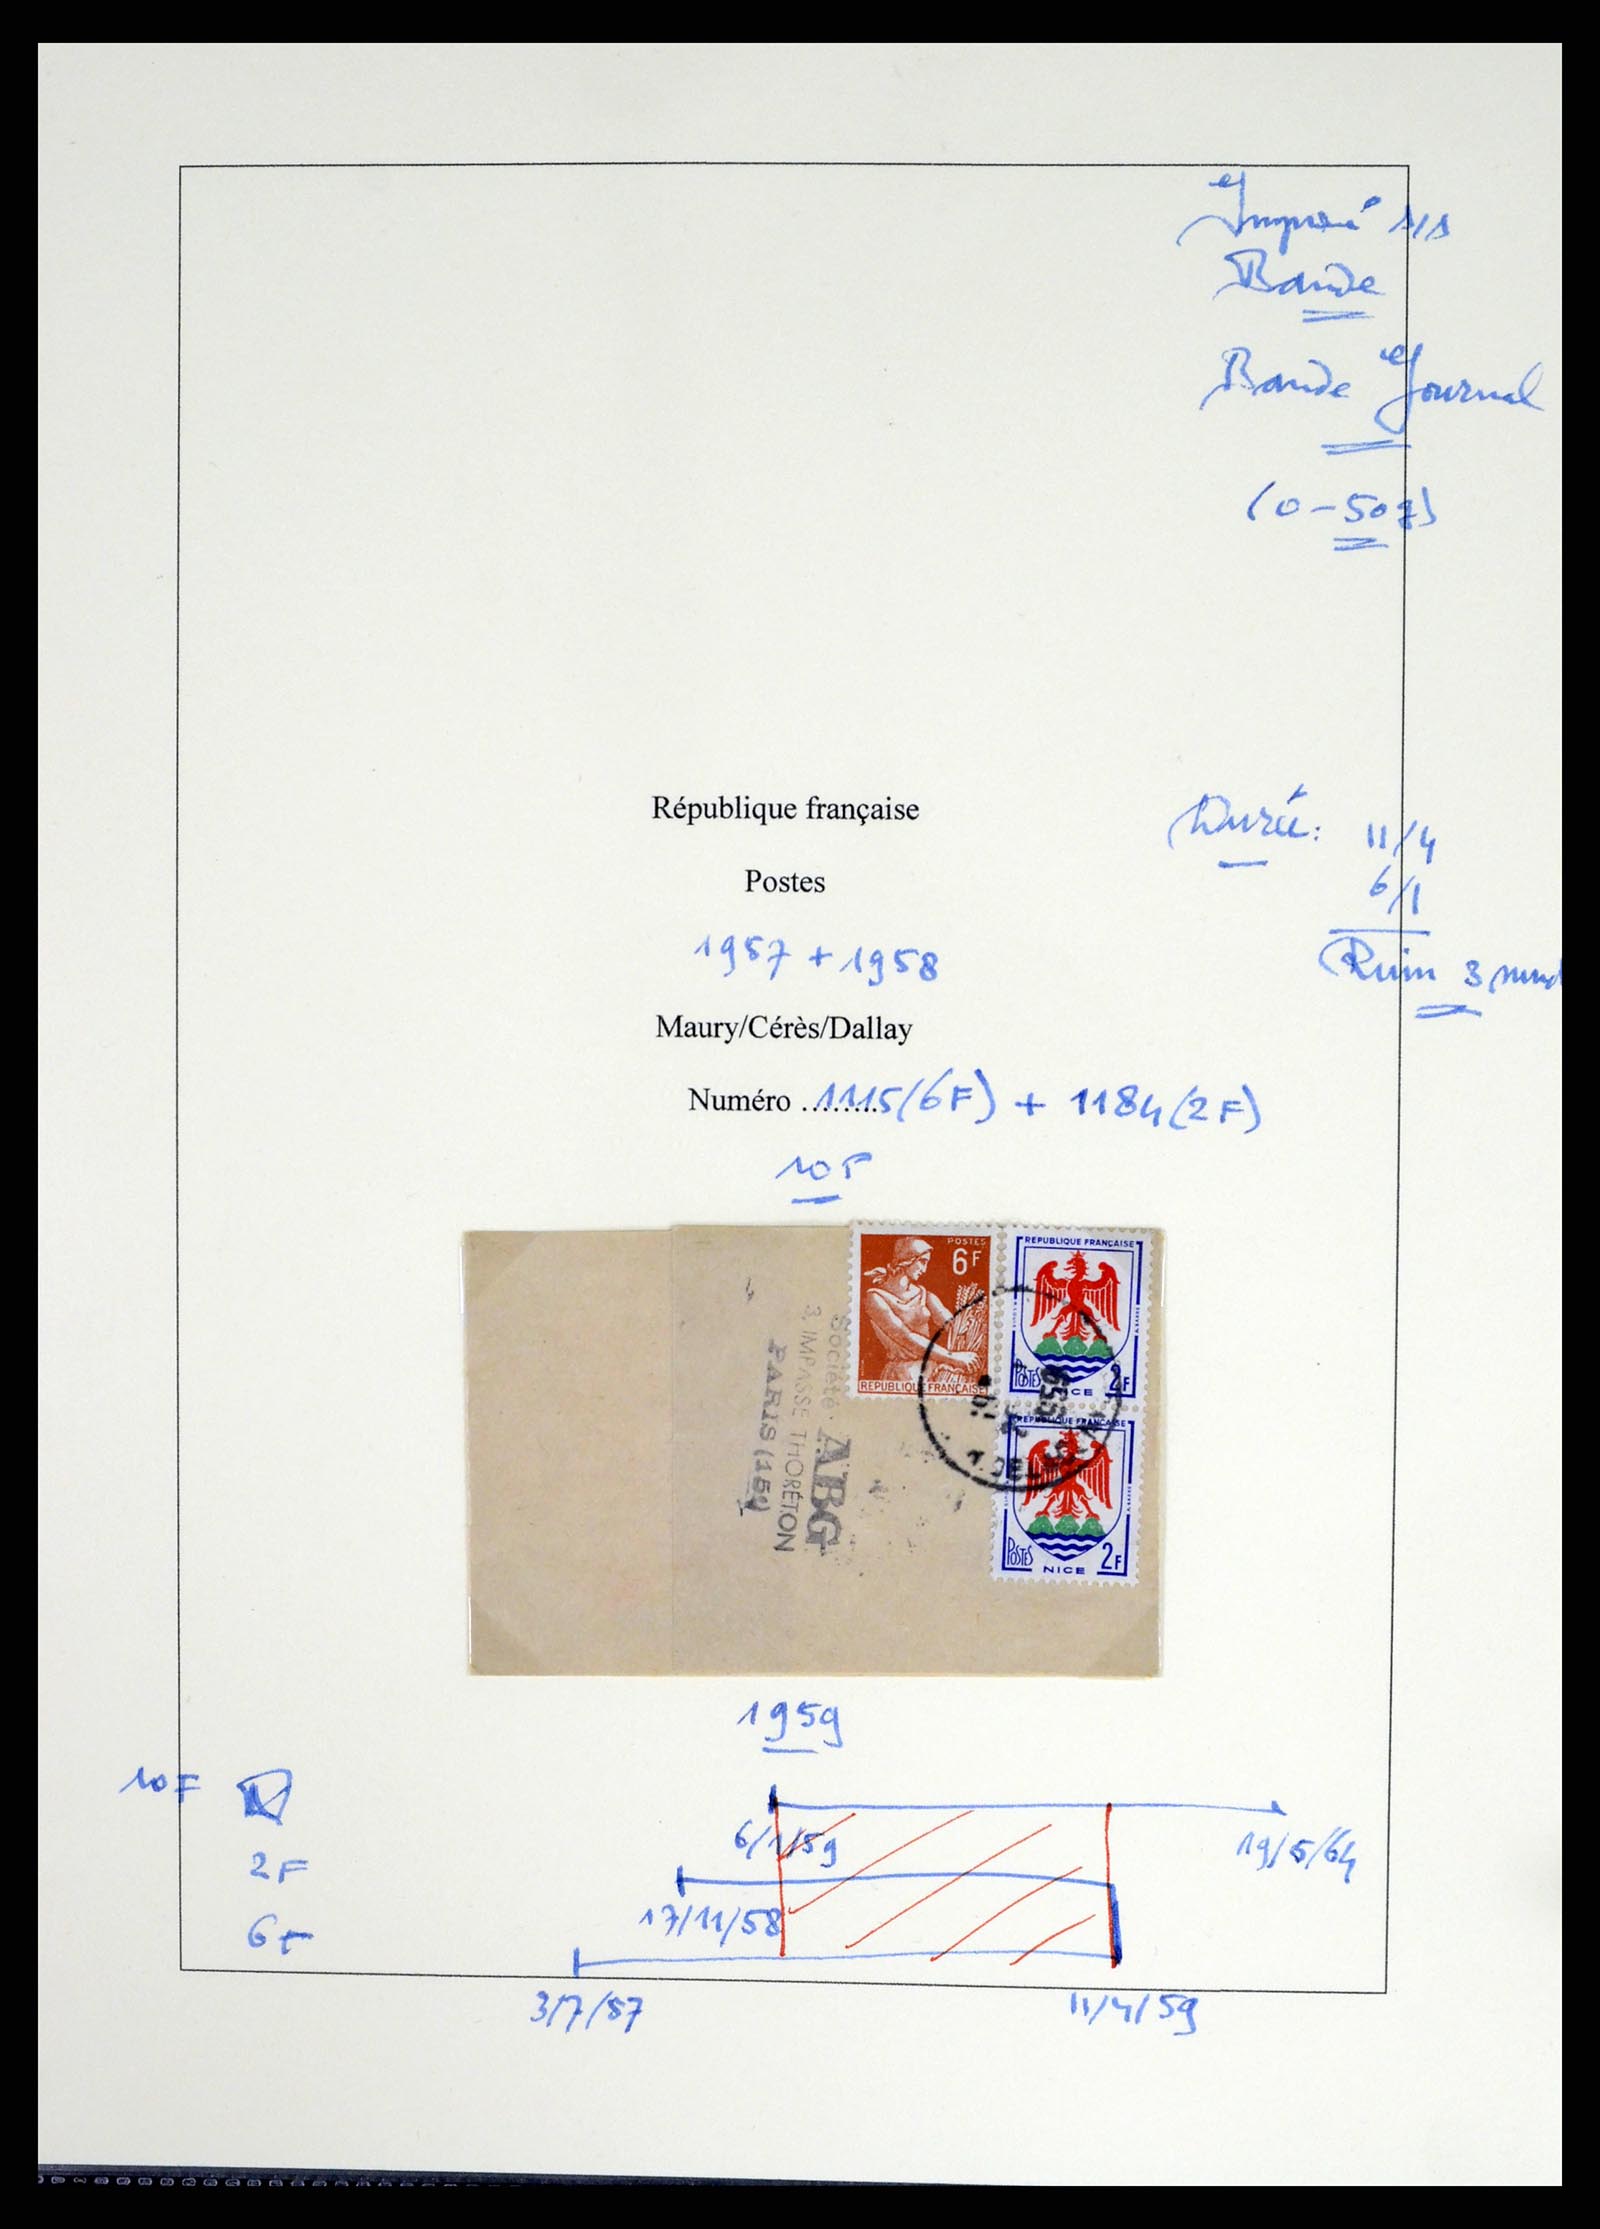 Imprimé s/s
Bande
Bande Journal
(0-50g)
République française
Durée: 11/4
Postes
6/1
1957 + 1958
3
Maury/Cérès/Dallay
Numéro ........1115(6F) + 1184(2F)
10F
POSTES
6F
REPUBLIQUE FRANÇAISE
REPUBLIQUE FRANÇAISE
POSTES 2F
NICE
REPUBLIQUE FRANÇAISE
POSTES 2F
NICE
Société ABG
3, IMPASSE THORÉTON
PARIS (15e)
1959
10F
6/1/59
19/5/64
2F
17/11/58
6F
3/7/57
11/4/59